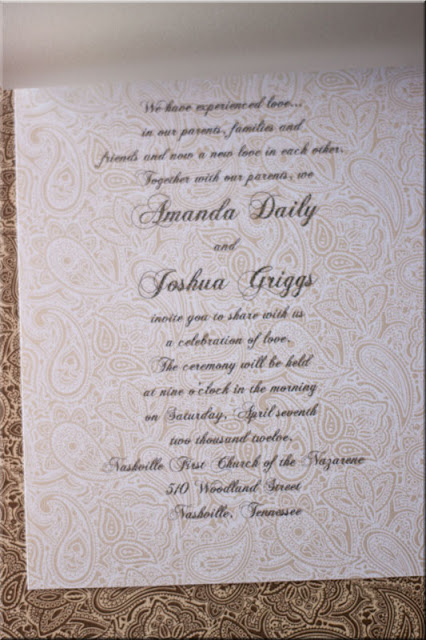 We have experienced love...
in our parents, families and
friends and now a new love in each other.
Together with our parents, we
Amanda Daily
and
Joshua Griggs
invite you to share with us
a celebration of love.
The ceremony will be held
at nine o'clock in the morning
on Saturday, April seventh
two thousand twelve,
Nashville First Church of the Nazarene
510 Woodland Street
Nashville, Tennessee